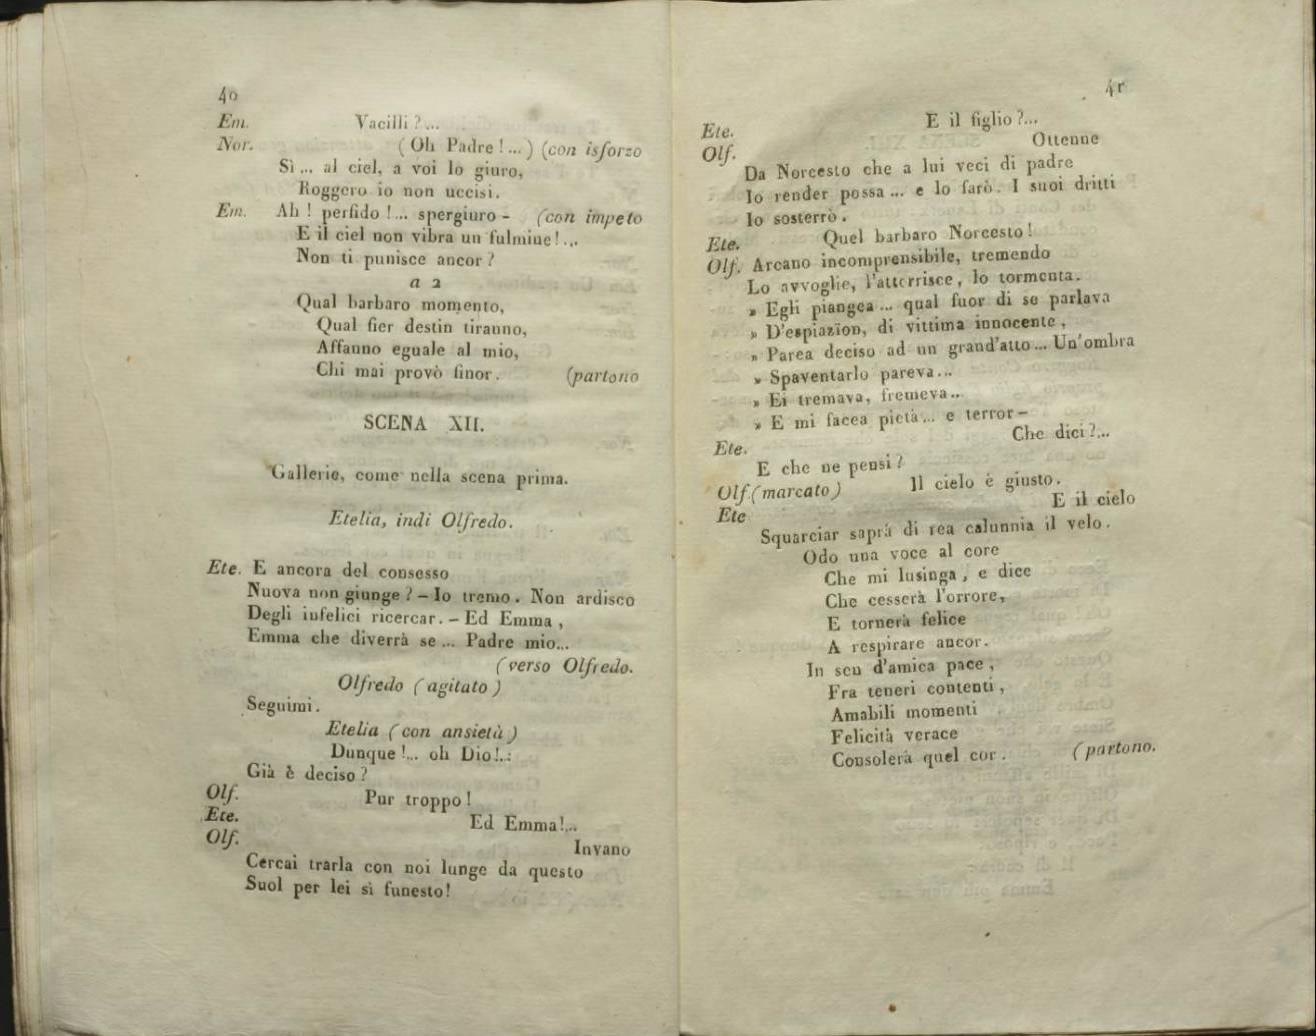 40
Em. Vacilli?...
Nor. (Oh Padre!...) (con isforzo
Sì... al ciel, a voi lo giuro,
Roggero io non uccisi.
Em. Ah! perfido!... spergiuro - (con impeto
E il ciel non vibra un fulmine!...
Non ti punisce ancor?
a 2
Qual barbaro momento,
Qual fier destin tiranno,
Affanno eguale al mio,
Chi mai provò finor. (partono
SCENA XII.
Gallerie, come nella scena prima.
Etelia, indi Olfredo.
Ete. E ancora del consesso
Nuova non giunge? – Io tremo. Non ardisco
Degli infelici ricercar. – Ed Emma,
Emma che diverrà se... Padre mio...
(verso Olfredo.
Olfredo (agitato)
Seguimi.
Etelia (con ansietà)
Dunque!... oh Dio!..:
Già è deciso?
Olf. Pur troppo!
Ete. Ed Emma!...
Olf. Invano
Cercai trarla con noi lunge da questo
Suol per lei sì funesto!
41
Ete. E il figlio?...
Olf. Ottenne
Da Norcesto che a lui veci di padre
Io render possa... e lo farò. I suoi dritti
Io sosterrò.
Ete. Quel barbaro Norcesto!
Olf. Arcano incomprensibile, tremendo
Lo avvoglie, l'atterrisce, lo tormenta.
» Egli piangea... qual fuor di se parlava
» D'espiazïon, di vittima innocente,
» Parea deciso ad un grand'atto... Un'ombra
» Spaventarlo pareva...
» Ei tremava, fremeva...
» E mi facea pietà... e terror –
Ete. Che dici?...
E che ne pensi?
Olf. (marcato) Il cielo è giusto.
Ete E il cielo
Squarciar saprà di rea calunnia il velo.
Odo una voce al core
Che mi lusinga, e dice
Che cesserà l'orrore,
E tornerà felice
A respirare ancor.
In sen d'amica pace,
Fra teneri contenti,
Amabili momenti
Felicità verace
Consolerà quel cor. (partono.